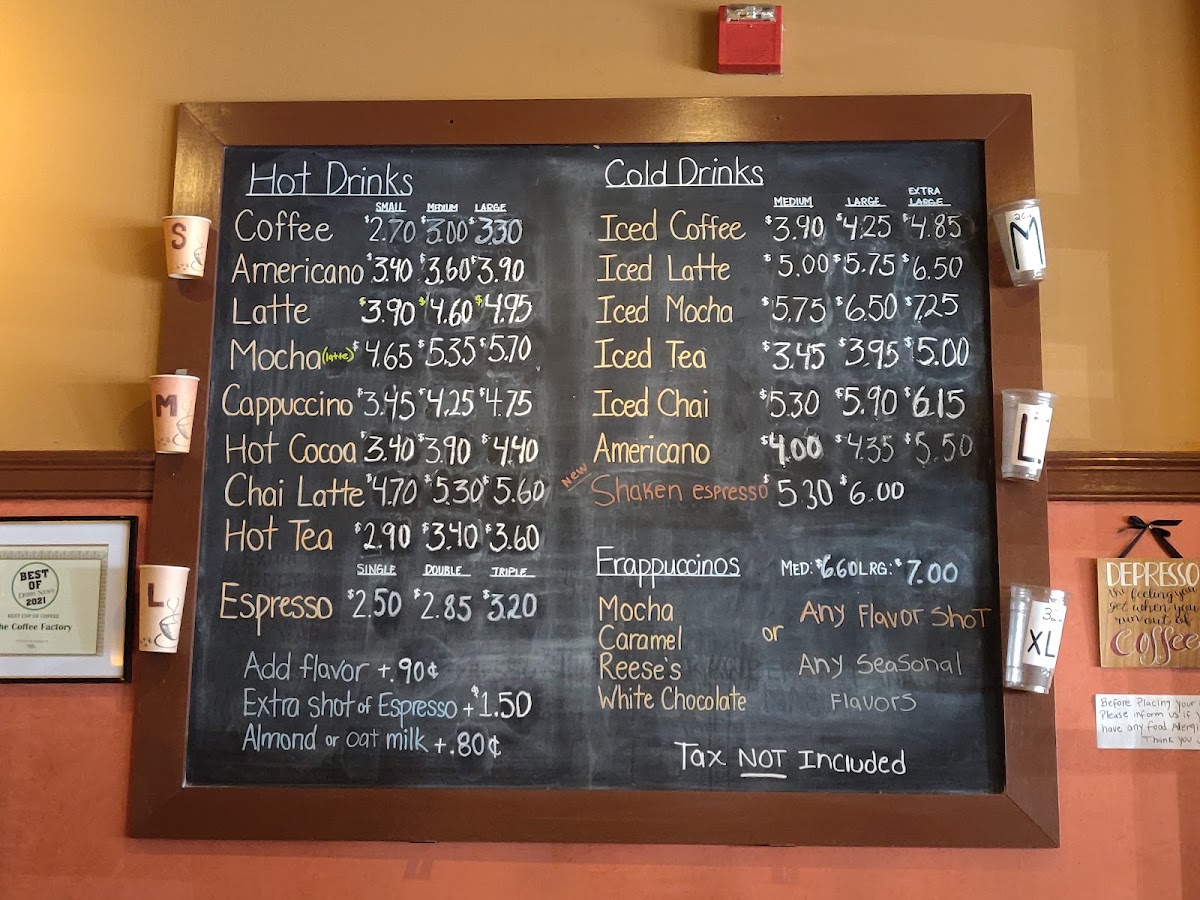 Hot Drinks
SMALL MEDIUM LARGE
Coffee $2.70 $3.00 $3.30
Americano $3.40 $3.60 $3.90
Latte $3.90 $4.60 $4.95
Mocha (latte) $4.65 $5.35 $5.70
Cappuccino $3.45 $4.25 $4.75
Hot Cocoa $3.40 $3.90 $4.40
Chai Latte $4.70 $5.30 $5.60
Hot Tea $2.90 $3.40 $3.60
SINGLE DOUBLE TRIPLE
Espresso $2.50 $2.85 $3.20
Add flavor +.90¢
Extra shot of Espresso + $1.50
Almond or oat milk +.80¢
Cold Drinks
MEDIUM LARGE EXTRA LARGE
Iced Coffee $3.90 $4.25 $4.85
Iced Latte $5.00 $5.75 $6.50
Iced Mocha $5.75 $6.50 $7.25
Iced Tea $3.45 $3.95 $5.00
Iced Chai $5.30 $5.90 $6.15
Americano $4.00 $4.35 $5.50
New Shaken espresso $5.30 $6.00
Frappuccinos MED: $6.60 LRG: $7.00
Mocha
Caramel
Reese's
White Chocolate
or
Any Flavor Shot
Any Seasonal
Flavors
Tax NOT Included
S
M
L
M
L
XL
BEST
OF
2021
BEST CUP OF COFFEE
The Coffee Factory
DEPRESSO
the feeling you
get when you
run out of
Coffee
Before Placing your
Please inform us if
have any food Allergi
Thank you